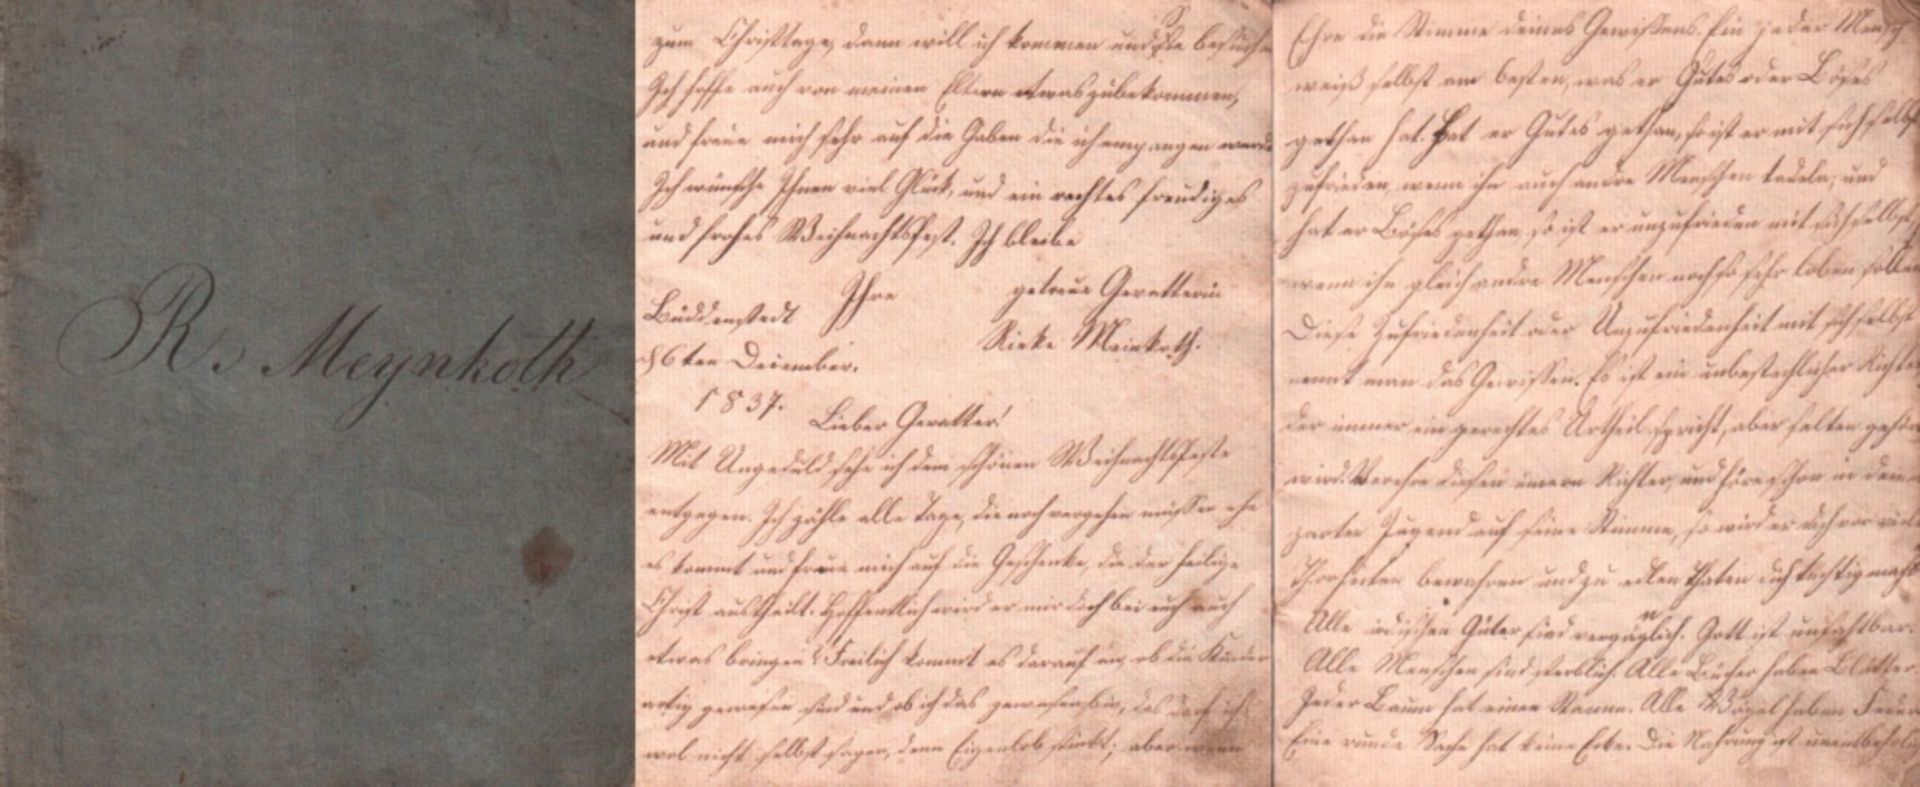 R. Meynkoth
zum Christtage, dann will ich kommen und Sie besuchen
Ich hoffe auch von meinen Eltern etwas zu bekommen,
und freue mich sehr auf die Gaben die ich empfangen werde
Ich wünsche Ihnen viel Glück, und ein rechtes freudiges
und frohes Weihnachtsfest. Ich bleibe
Ihre getreue Gevatterin
Büddenstedt
Rieke Meinkoth.
6ten December.
1837.
Lieber Gevatter!
Mit Ungeduld sehe ich dem schönen Weihnachtsfeste
entgegen. Ich zähle alle Tage, die noch vergehen müssen ehe
es kommt und freue mich auf die Geschenke, die der heilige
Christ austheilt. Hoffentlich wird er mir doch bei euch auch
etwas bringen? Freilich kommt es darauf an, ob die Kinder
artig gewesen sind und ob ich das gewesen bin, das darf ich
wol nicht selbst sagen, denn Eigenlob stinkt; aber wenn
Ehre die Stimme deines Gewissens. Ein jeder Mensch
weiß selbst am besten, was er Gutes oder Böses
gethan hat. Hat er Gutes gethan, so ist er mit sich selbst
zufrieden, wenn ihn auch andre Menschen tadeln; und
hat er Böses gethan, so ist er unzufrieden mit sich selbst,
wenn ihn gleich andre Menschen noch so sehr loben sollten
Diese Zufriedenheit oder Unzufriedenheit mit sich selbst
nennt man das Gewissen. Es ist ein unbestechlicher Richter
der immer ein gerechtes Urtheil spricht, aber selten gehört
wird. Verehre diesen innern Richter, und höre schon in deiner
zarten Jugend auf seine Stimme, so wird er dich vor vielen
Thorheiten bewahren und zu edlen Thaten dich tüchtig machen
Alle irdischen Güter sind vergänglich. Gott ist unsichtbar.
Alle Menschen sind sterblich. Alle Bücher haben Blätter.
Jeder Baum hat einen Stamm. Alle Vögel haben Federn
Eine runde Sache hat keine Ecke. Die Nahrung ist unentbehrlich